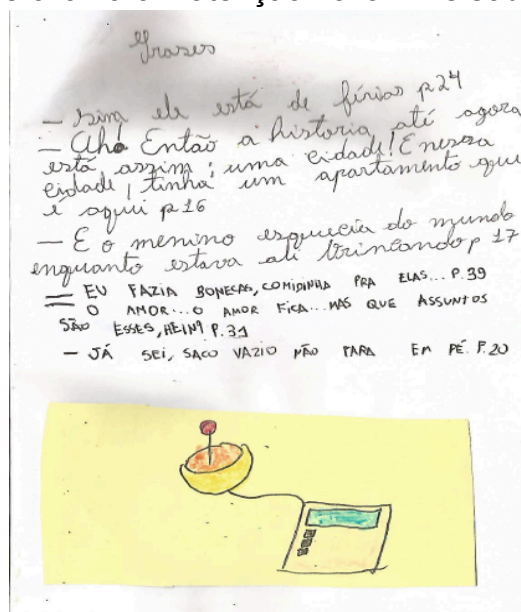 Frases
— Sim ele está de férias p 24
— Aho Então a historia até agora
está assim: uma cidade! E nessa
cidade, tinha um apartamento que
é aqui p 16
— E o menino esquecia do mundo
enquanto estava ali brincando p 17
— EU FAZIA BONECAS, COMIDINHA PRA ELAS... P.39
— O AMOR... O AMOR FICA... MAS QUE ASSUNTOS
SÃO ESSES, HEIN? P.31
— JÁ SEI, SACO VAZIO NÃO PARA EM PÉ. P.20